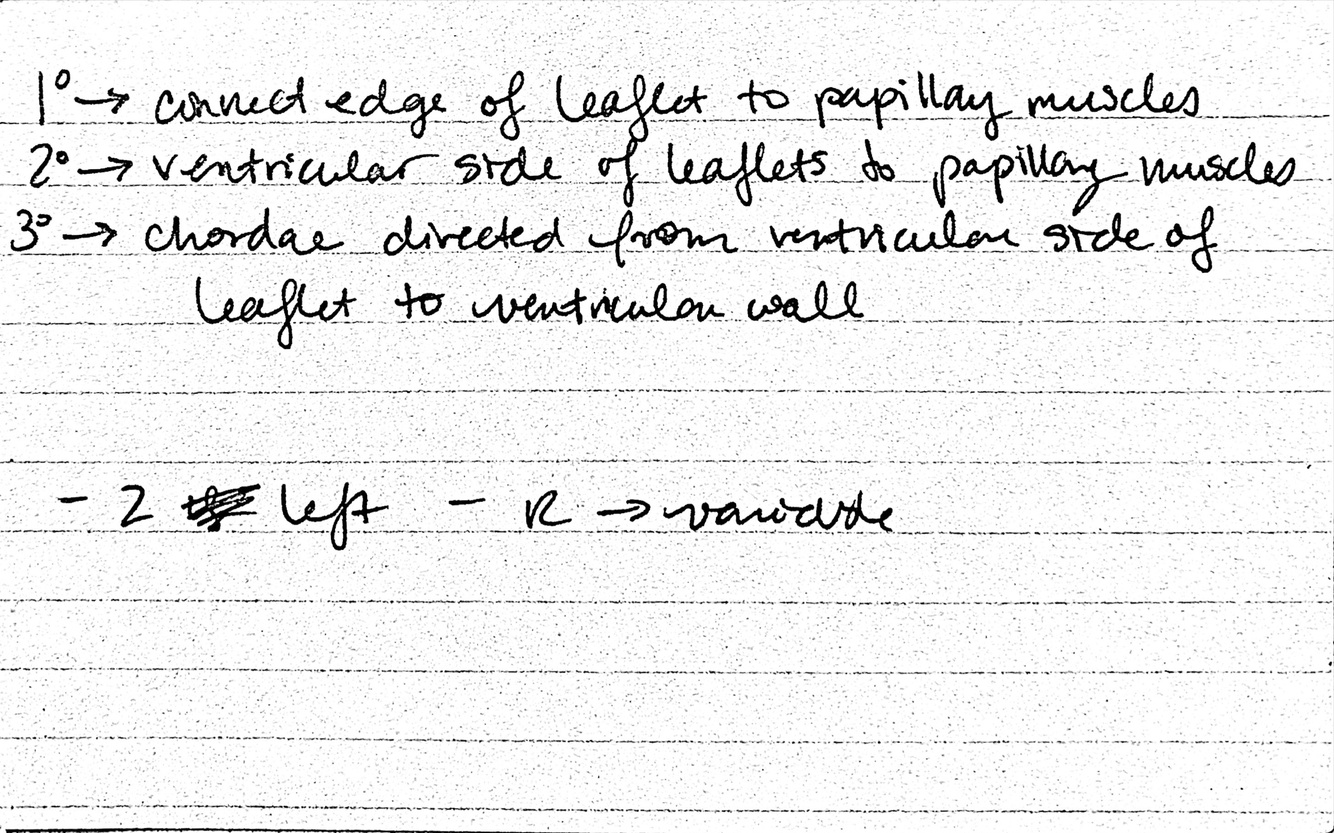 1° → connect edge of leaflet to papillay muscles
2° → ventricular side of leaflets to papillary muscles
3° → chordae directed from ventricular side of
leaflet to ventricular wall
- 2 left - R → variable